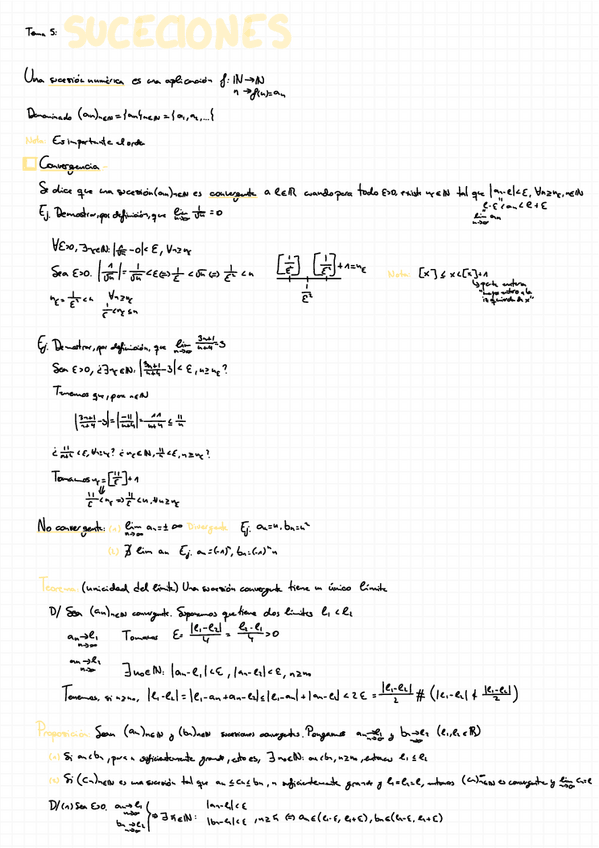 Tema 5: SUCECIONES
Una sucesión numérica es una aplicación f: ℕ→ℕ
n → f(n)=aₙ
Denominado (aₙ)ₙ∈ℕ = {aₙ}ₙ∈ℕ = {a₁, a₂, ...}
Nota: Es importante el orden
Convergencia
Se dice que una sucesión (aₙ)ₙ∈ℕ es convergente a ℓ∈ℝ cuando para todo ε>0, existe n_ε∈ℕ tal que |aₙ-ℓ|<ε, ∀n≥n_ε, n∈ℕ
ℓ-ε<aₙ<ℓ+ε
lim aₙ
n→∞
Ej. Demostrar, por definición, que lim n→∞ 1/√n = 0
∀ε>0, ∃n_ε∈ℕ: |1/√n - 0|<ε, ∀n≥n_ε
Sea ε>0. |1/√n| = 1/√n < ε ⇔ 1/ε < √n ⇔ 1/ε² < n
[1/ε²] [1/ε²]+1=n_ε
1/ε²
Nota: [x] ≤ x < [x]+1
parte entera
"izquierda de x"
n_ε = 1/ε² < n ∀n≥n_ε
1/ε² < n_ε ≤ n
Ej. Demostrar, por definición, que lim n→∞ (3n+1)/(n+4) = 3
Sea ε>0, ¿∃n_ε∈ℕ: |(3n+1)/(n+4) - 3| < ε, n≥n_ε?
Tenemos que, para n∈ℕ
|(3n+1)/(n+4) - 3| = |-11/(n+4)| = 11/(n+4) ≤ 11/n
¿ 11/n < ε, ∀n≥n_ε? ¿n_ε∈ℕ, 11/n < ε, n≥n_ε?
Tomamos n_ε = [11/ε]+1
11/ε < n_ε ⇒ 11/ε < n, ∀n≥n_ε
No convergente: (1) lim n→∞ aₙ = ±∞ Divergente Ej. aₙ=n, bₙ=n²
(2) ∄ lim aₙ Ej. aₙ=(-1)ⁿ, bₙ=(-1)ⁿn
Teorema (unicidad del límite) Una sucesión convergente tiene un único límite
D/ Sea (aₙ)ₙ∈ℕ convergente. Supongamos que tiene dos límites ℓ₁<ℓ₂
aₙ→ℓ₁ n→∞ Tomamos ε = |ℓ₁-ℓ₂|/4 = (ℓ₂-ℓ₁)/4 > 0
aₙ→ℓ₂ n→∞ ∃n₀∈ℕ: |aₙ-ℓ₁|<ε, |aₙ-ℓ₂|<ε, n≥n₀
Tenemos, si n≥n₀, |ℓ₁-ℓ₂| = |ℓ₁-aₙ+aₙ-ℓ₂| ≤ |ℓ₁-aₙ|+|aₙ-ℓ₂| < 2ε = |ℓ₁-ℓ₂|/2 # (|ℓ₁-ℓ₂| ≮ |ℓ₁-ℓ₂|/2)
Proposición: Sean (aₙ)ₙ∈ℕ y (bₙ)ₙ∈ℕ sucesiones convergentes. Pongamos aₙ→ℓ₁ n→∞ y bₙ→ℓ₂ n→∞ (ℓ₁,ℓ₂∈ℝ)
(1) Si aₙ<bₙ, para n suficientemente grande, esto es, ∃n₀∈ℕ: aₙ<bₙ, n≥n₀, entonces ℓ₁≤ℓ₂
(2) Si (cₙ)ₙ∈ℕ es una sucesión tal que aₙ≤cₙ≤bₙ, n suficientemente grande y ℓ₁=ℓ₂=ℓ, entonces (cₙ)ₙ∈ℕ es convergente y lim n→∞ cₙ=ℓ
D/(1) Sea ε>0. aₙ→ℓ₁ n→∞
bₙ→ℓ₂ n→∞ ⇒ ∃ñ∈ℕ: |aₙ-ℓ₁|<ε
|bₙ-ℓ₂|<ε, n≥ñ ⇔ aₙ∈(ℓ₁-ε, ℓ₁+ε), bₙ∈(ℓ₂-ε, ℓ₂+ε)